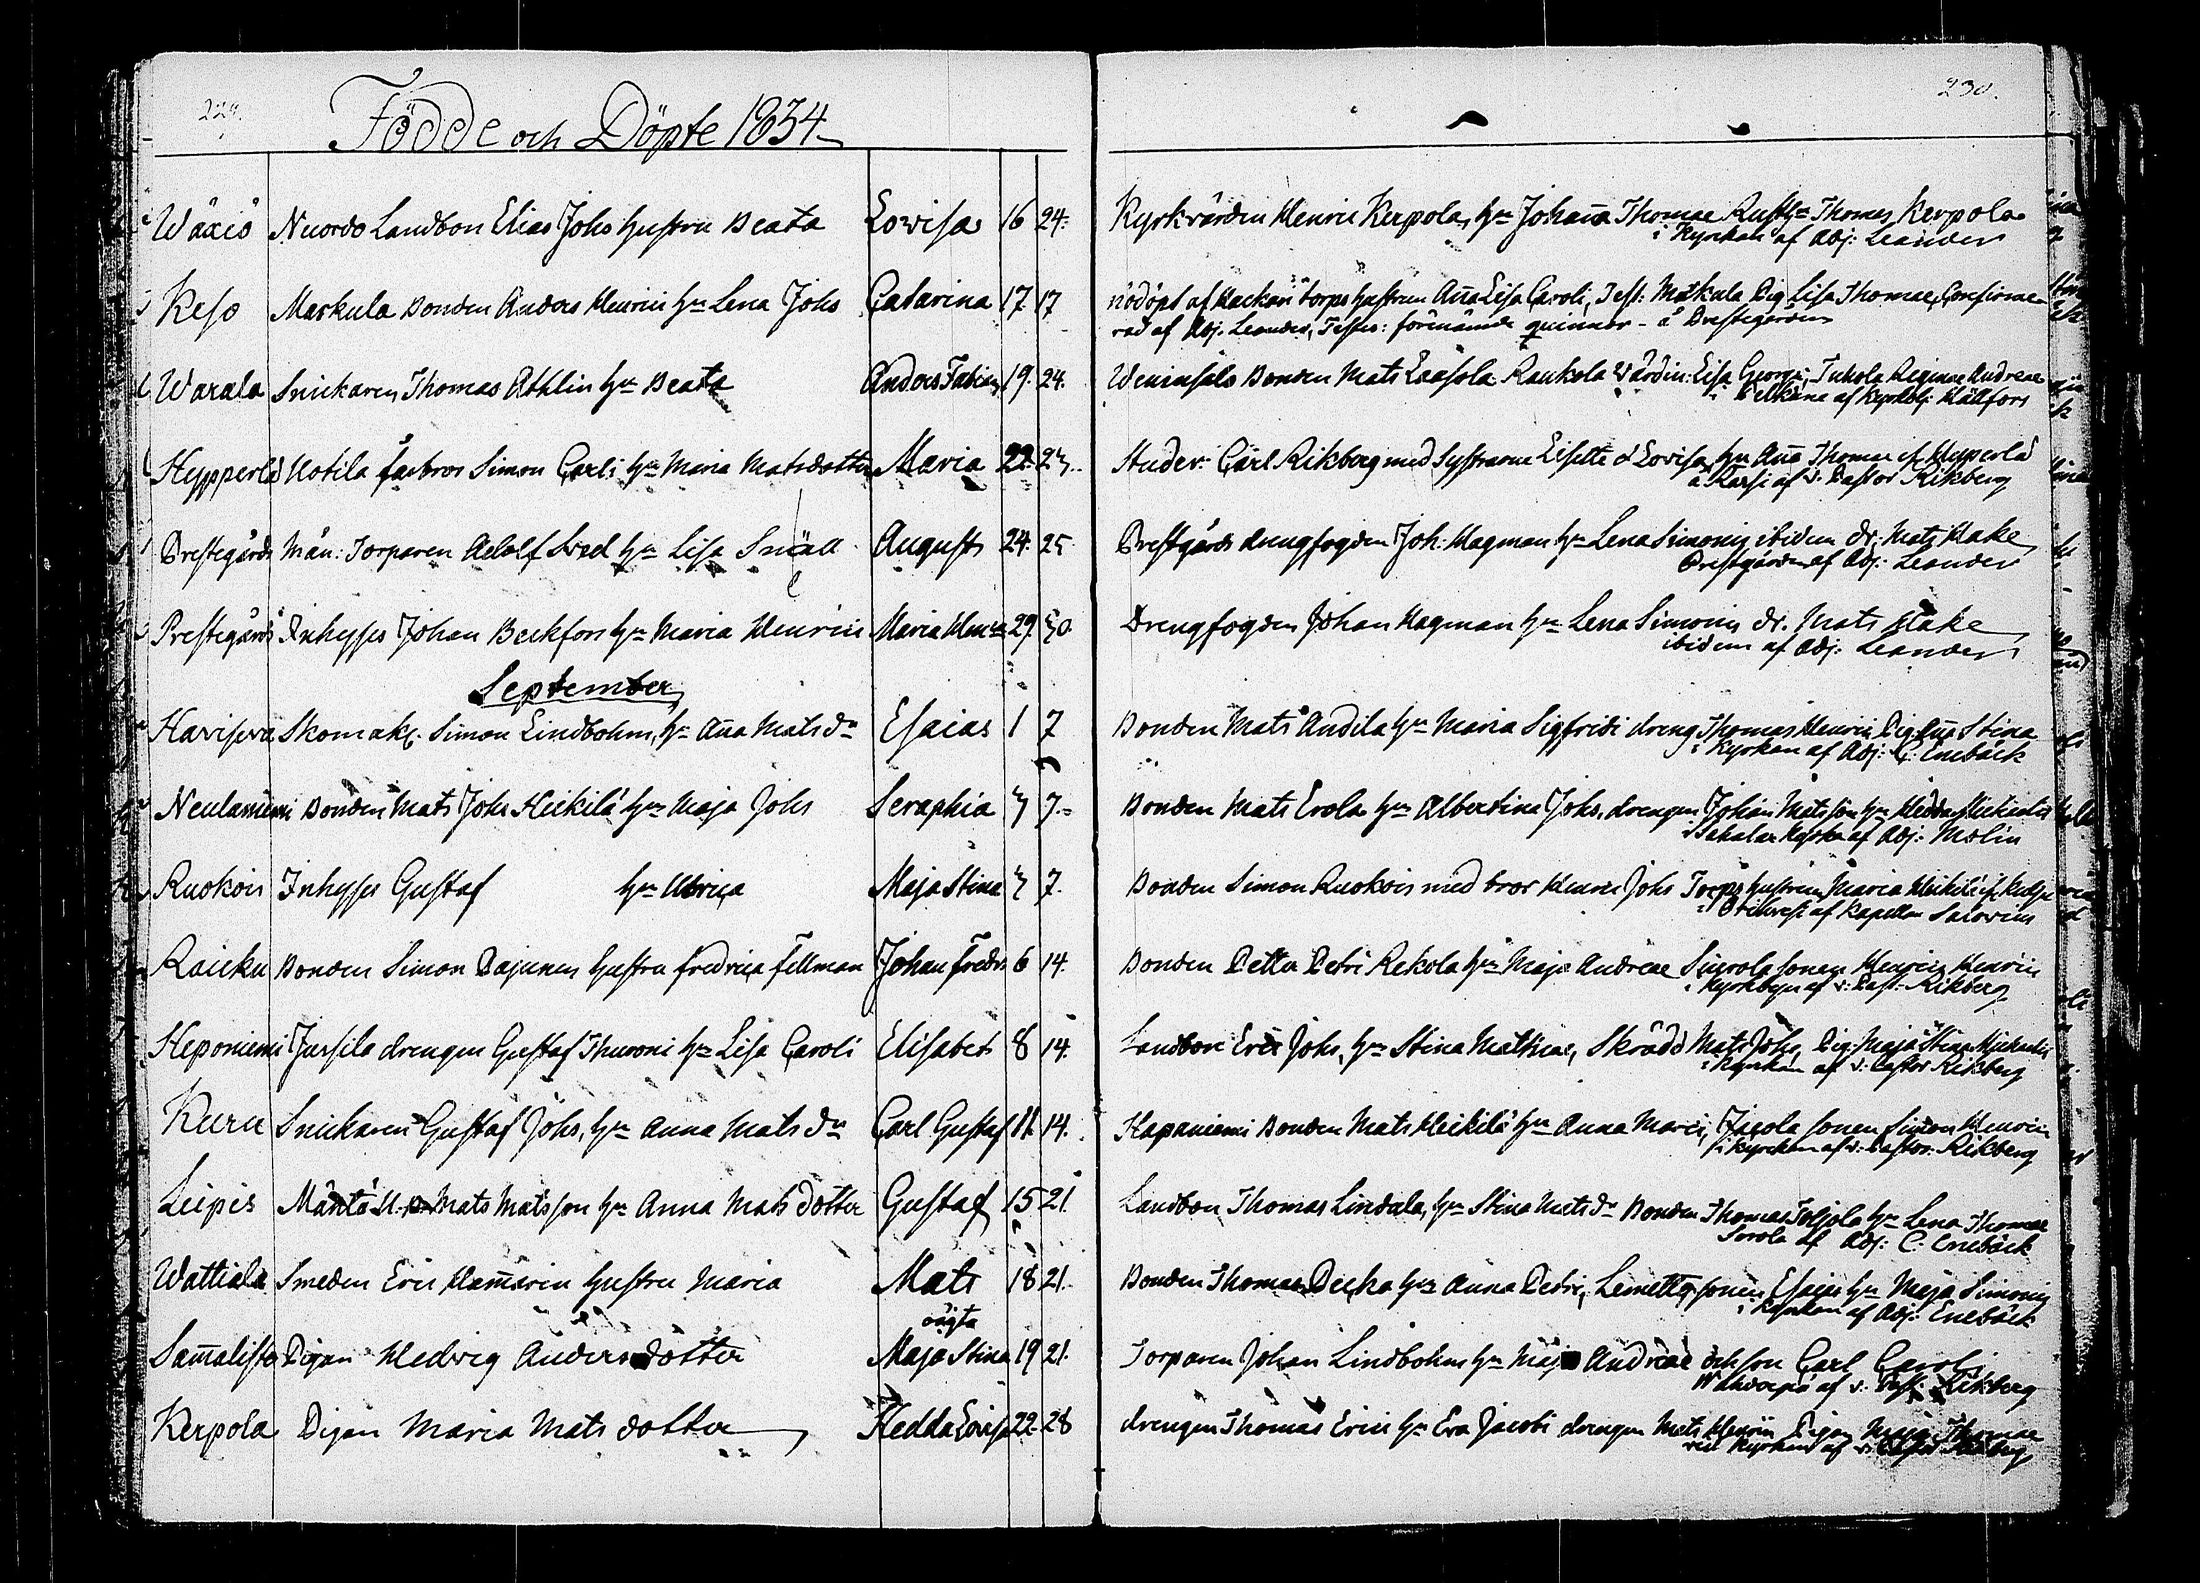 229.
Födde och Döpte 1834
230.
Wäxiö Nuordo Landbon Elias Johs hustru Beata Lovisa 16 24.
Kyrkvärden Henric Kerpola, hu Johanna Thomae Rusth: Thomas Kerpola
i kyrkan af Adj: Leander
Keso Markula Bonden Anders Henrici hu Lena Johs Catarina 17 17
nöddöpt af torps hustrun Anna Lisa Caroli, Test: Markula Pig Lisa Thomae, Confirme-
rad af Adj. Leander, Testes: förenämde quinnor - å Prestegården
Warala Snickaren Thomas Athlin hu Beata Anders Fabian 19. 24.
Bonden Mats Laasola Raukola Lisa Georgi, Juhola Regina Andreae
i Pelkäne af Hällfors
Hypperlä Uotila farbror Simon Carli hu Maria Matsdotter Maria 22. 25.
Studer: Carl Rikberg med systrarne Lisette o Lovisa, hu Anna Thomae if Hyperlä
af v. Pastor Rikberg
Prestegårds Torparen Adolf Sved hu Lisa Snäll August 24. 25
Prestgårds drengfogden Joh: Hagman hu Lena Simonis ibidem dr. Mats Hake
Prestgården af Adj: Leander
Prestegårds Inhyses Johan Beckfors hu Maria Henrici Maria 29. 30.
Drengfogden Johan Hagman hu Lena Simonis dr. Mats Hake
ibidem af Adj: Leander
September
Haviseva Skomak. Simon Lindbohm, hu Anna Mats dr Esaias 1 7
Bonden Mats Andila hu Maria Sigfridi dreng Thomas Henrici, Pig Anna Stina
i Kyrkan af Adj: C. Enebäck
Neulaniemi Bonden Mats Johs Heikilä hu Maja Johs Seraphia 3 7.
Bonden Mats Erola hu Albertina Johs, drengen Johan Matsson hu Hedda
i Sahalax kyrka af Adj: Molin
Ruokois Inhyses Gustaf hu Ulrica Maja Stina 3 7.
Bonden Simon Ruokois med bror Henric Johs Torps hustrun Maria
i Orihvesi af Kapellan Salovius
Raicku Bonden Simon Pajunen hustru Fredrica Fellman Johan Fredr. 6 14.
Bonden Petter Petri Rekola hu Maja Andreae Sierola sonen Henric Henrici
i Kyrkbyn af v: Past. Rikberg
Heponiemi Jussila drengen Gustaf Thuroni hu Lisa Caroli Elisabet 8 14.
Landbon Eric Johs, hu Stina Mathiae, Skrädd Mats Johs, Pig: Maja Stina Michaelis
i Kyrkan af v: Pastor Rikberg
Kuru Snickaren Gustaf Johs, hu Anna Mats dr Carl Gustaf 11. 14.
Hapaniemi Bonden Mats Heikilä hu Anna Marci, Jacola sonen Simon Henrici
i kyrkan af v: Pastor: Rikberg
Leipis Mäntä Mats Matsson hu Anna Mats dotter Gustaf 15 21.
Landbon Thomas Lindala, hu Stina Mats dr Bonden Thomas hu Lena Thomae
Sorola af Adj: C: Enebäck
Wattiala Smeden Eric Hammarin hustru Maria Mats 18 21.
Bonden Thomas Pecka hu Anna Petri, Lemetty sonen Esaias hu Maja Simonis
i kyrkan af Adj: Enebäck
oägta
Sammalisto Pigan Hedvig Andersdotter Maja Stina 19 21.
Torparen Johan Lindbohm hu Maja Andreae och son Carl Caroli
af v. Past: Rikberg
Kerpola Pigan Maria Mats dotter Hedda Lovisa 22. 28
drengen Thomas Erici hu Eva Jacobi drengen Mats Henrici Pigan Maja Thomae
vid kyrkan af v: Pastor Rikberg